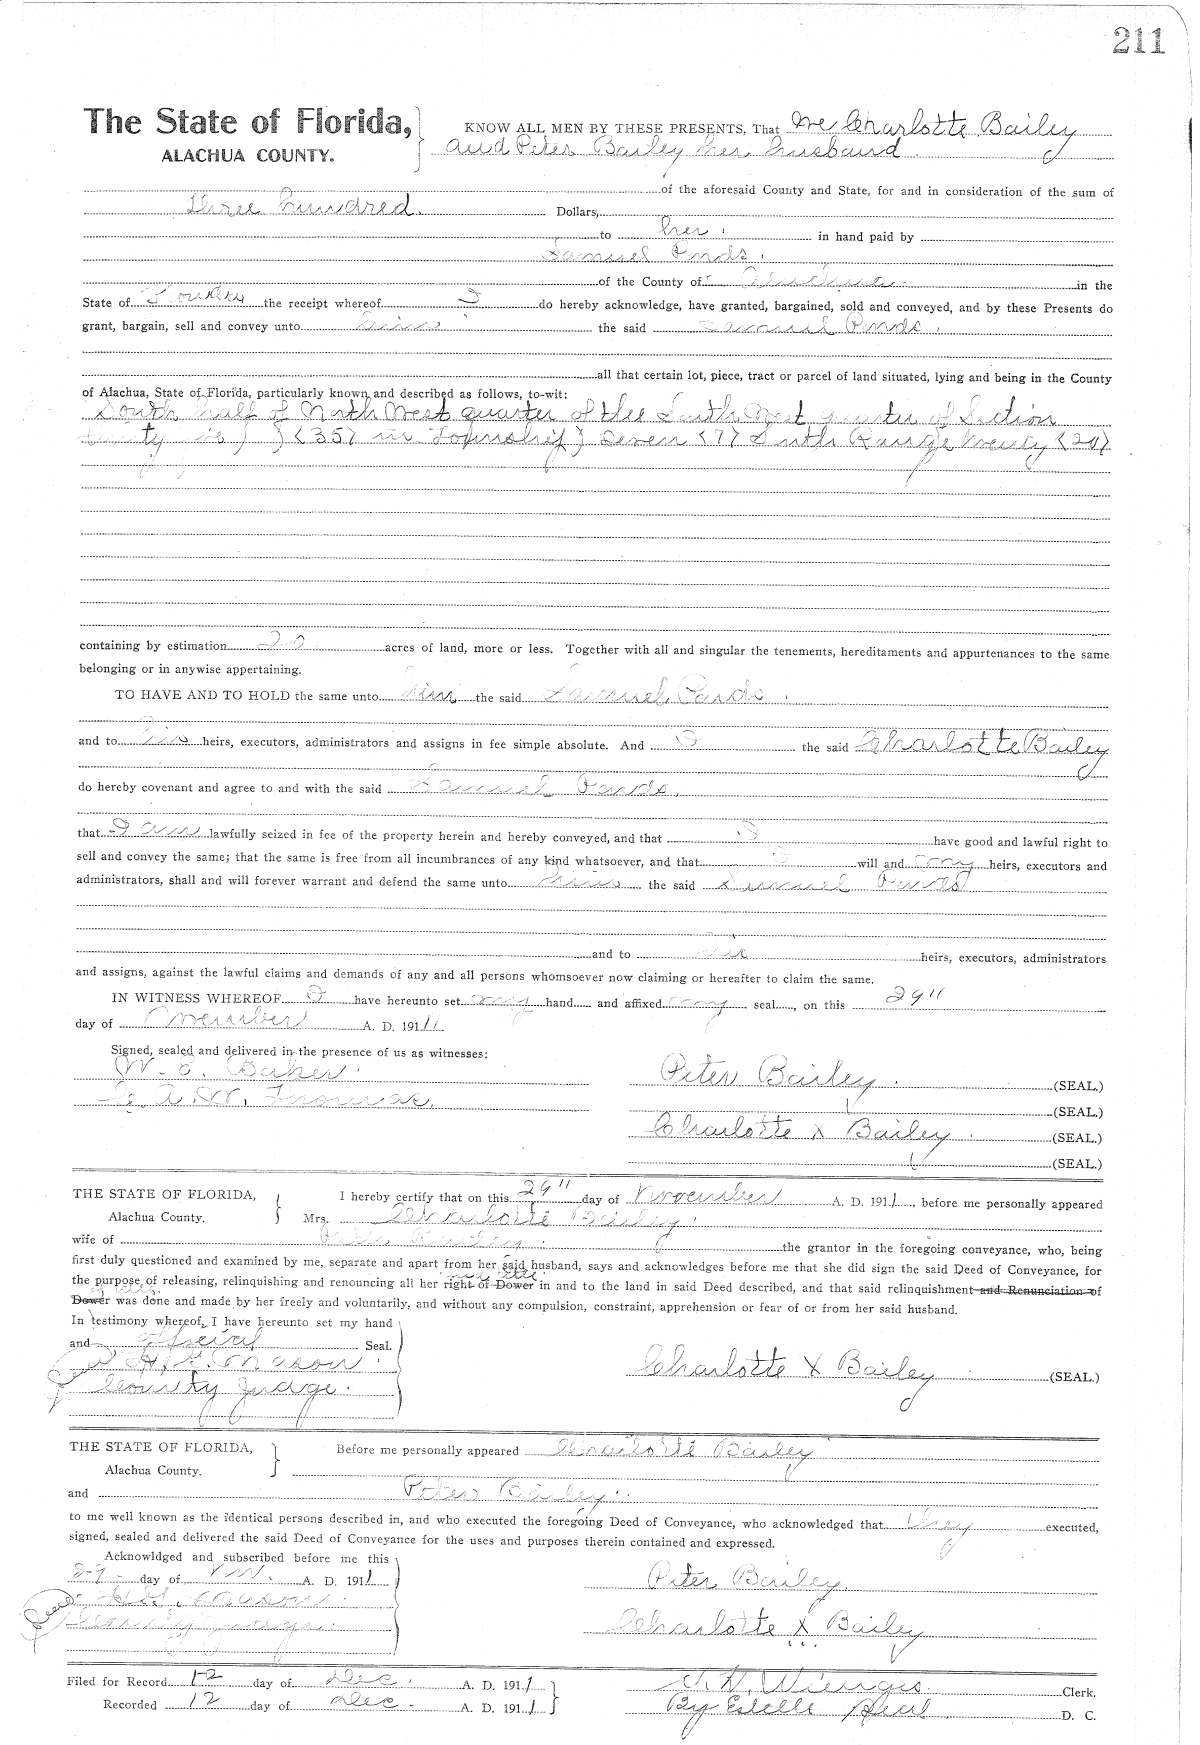 211
The State of Florida,
ALACHUA COUNTY.
KNOW ALL MEN BY THESE PRESENTS, That We Charlotte Bailey
and Peter Bailey her husband.
of the aforesaid County and State, for and in consideration of the sum of
Three hundred. Dollars,
to her. in hand paid by
Samuel
of the County of Alachua in the
State of Florida the receipt whereof I do hereby acknowledge, have granted, bargained, sold and conveyed, and by these Presents do
grant, bargain, sell and convey unto him the said Samuel
all that certain lot, piece, tract or parcel of land situated, lying and being in the County
of Alachua, State of Florida, particularly known and described as follows, to-wit:
South half of North West quarter of the South West quarter of Section
(35) in Township Seven (7) South Range Twenty (20)
containing by estimation 20 acres of land, more or less. Together with all and singular the tenements, hereditaments and appurtenances to the same
belonging or in anywise appertaining.
TO HAVE AND TO HOLD the same unto him the said Samuel
and to his heirs, executors, administrators and assigns in fee simple absolute. And I the said Charlotte Bailey
do hereby covenant and agree to and with the said Samuel
that I am lawfully seized in fee of the property herein and hereby conveyed, and that I have good and lawful right to
sell and convey the same; that the same is free from all incumbrances of any kind whatsoever, and that I will and my heirs, executors and
administrators, shall and will forever warrant and defend the same unto him the said Samuel
and to his heirs, executors, administrators
and assigns, against the lawful claims and demands of any and all persons whomsoever now claiming or hereafter to claim the same.
IN WITNESS WHEREOF I have hereunto set my hand and affixed my seal, on this 29"
day of November A. D. 1911
Signed, sealed and delivered in the presence of us as witnesses:
W. E. Baker.
Thomas.
Peter Bailey. (SEAL.)
(SEAL.)
Charlotte X Bailey. (SEAL.)
(SEAL.)
THE STATE OF FLORIDA,
Alachua County.
I hereby certify that on this 29" day of November A. D. 1911, before me personally appeared
Mrs. Charlotte Bailey.
wife of Peter Bailey. the grantor in the foregoing conveyance, who, being
first duly questioned and examined by me, separate and apart from her said husband, says and acknowledges before me that she did sign the said Deed of Conveyance, for
the purpose of releasing, relinquishing and renouncing all her right of Dower in and to the land in said Deed described, and that said relinquishment and Renunciation of
Dower was done and made by her freely and voluntarily, and without any compulsion, constraint, apprehension or fear of or from her said husband.
In testimony whereof, I have hereunto set my hand
and official Seal.
H. G. Mason.
County Judge.
Charlotte X Bailey (SEAL.)
THE STATE OF FLORIDA,
Alachua County.
Before me personally appeared Charlotte Bailey
and Peter Bailey.
to me well known as the identical persons described in, and who executed the foregoing Deed of Conveyance, who acknowledged that they executed,
signed, sealed and delivered the said Deed of Conveyance for the uses and purposes therein contained and expressed.
Acknowldged and subscribed before me this
29 day of Nov. A. D. 1911
H. G. Mason.
County Judge.
Peter Bailey.
Charlotte X Bailey
Filed for Record 12 day of Dec. A. D. 1911
Recorded 12 day of Dec. A. D. 1911
S. H. Wienges. Clerk.
By Estelle D. C.